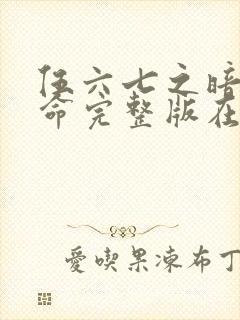 伍六七之暗
命完整版在
愛喫果凍布丁